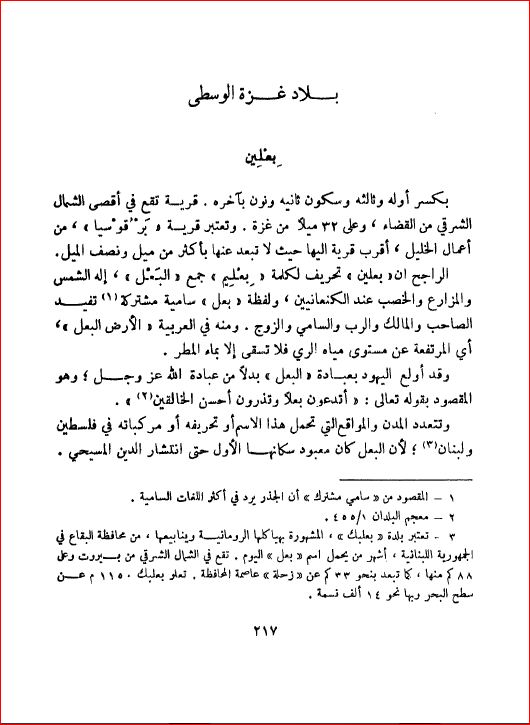 بـــلاد غـــزة الوسطى
بِعْلِين
بكسر أوله وثالثه وسكون ثانيه ونون بآخره . قريـة تقع في أقصى الشمال
الشرقي من القضاء ، وعلى ٣٢ ميلاً من غزة . وتعتبر قرية « بَرْقُوْسيا » ، من
أعمال الخليل ، أقرب قرية اليها حيث لا تبعد عنها بأكثر من ميل ونصف الميل.
الراجح ان« بعلين » تحريف لكلمة « بِعْلِيم » جمع « البَعْل » ، إله الشمس
والمزارع والخصب عند الكنعانيين ، ولفظة « بعل » سامية مشتركة (١) تفيـد
الصاحب والمالك والرب والسامي والزوج . ومنه في العربية « الأرض البعل »،
أي المرتفعة عن مستوى مياه الري فلا تسقى إلا بماء المطر .
وقد أولع اليهود بعبـادة « البعل » بدلاً من عبادة الله عز وجـل ؛ وهو
المقصود بقوله تعالى : « أتدعون بعلاً وتذرون أحسن الخالقين(٢) » .
وتتعدد المدن والمواقع التي تحمل هذا الاسم أو تحريفه أو مركباته في فلسطين
ولبنان(٣) ؛ لأن البعل كان معبود سكانهـا الأول حتى انتشار الدين المسيحي .
١ – المقصود من « سامي مشترك » أن الجذر يرد في أكثر اللغات السامية .
٢ – معجم البلدان ٤٥٥/١ .
٣ - تعتبر بلدة « بعلبك » ، المشهورة بهياكلها الرومانيـة وينابيعها ، من محافظة البقاع في
الجمهورية اللبنانية ، أشهر من يحمل اسم « بعل » اليوم . تقع في الشمال الشرقي من بـيروت وعلى
٨٨ كم منها ، كما تبعد بنحو ٣٣ كم عن « زحلة » عاصمة المحافظة . تعلو بعلبك ١١٥٠ م عـــن
سطح البحر وبها نحو ١٤ ألف نسمة .
٢١٧